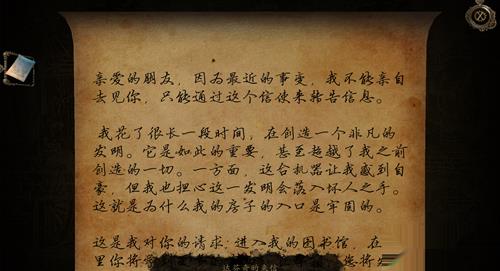 亲爱的朋友，因为最近的事变，我不能亲自
去见你，只能通过这个信使来转告信息。
我花了很长一段时间，在创造一个非凡的
发明。它是如此的重要，甚至超越了我之前
创造的一切。一方面，这台机器让我感到自
豪，但我也担心这一发明会落入坏人之手。
这就是为什么我的房子的入口是牢固的。
这是我对你的请求：进入我的图书馆，在
里你将